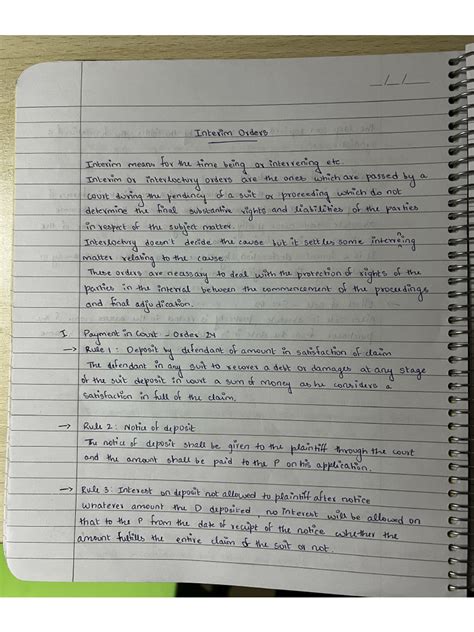 _/_/_
Interim Orders
Interim means for the time being or intervening etc.
Interim or interloctory orders are the ones which are passed by a
court during the pendency of a suit or proceeding which do not
determine the final substantive rights and liabilities of the parties
in respect of the subject matter.
Interloctory doesn't decide the cause but it settles some intervening
matter relating to the cause.
These orders are necessary to deal with the protection of rights of the
parties in the interval between the commencement of the proceedings
and final adjudication.
I Payment in Court - Order 24
→ Rule 1: Deposit by defendant of amount in satisfaction of claim
The defendant in any suit to recover a debt or damages at any stage
of the suit deposit in court a sum of money as he considers a
satisfaction in full of the claim.
→ Rule 2: Notice of deposit
The notice of deposit shall be given to the plaintiff through the court
and the amount shall be paid to the P on his application.
→ Rule 3: Interest on deposit not allowed to plaintiff after notice
Whatever amount the D deposited, no interest will be allowed on
that to the P from the date of receipt of the notice whether the
amount fulfills the entire claim of the suit or not.